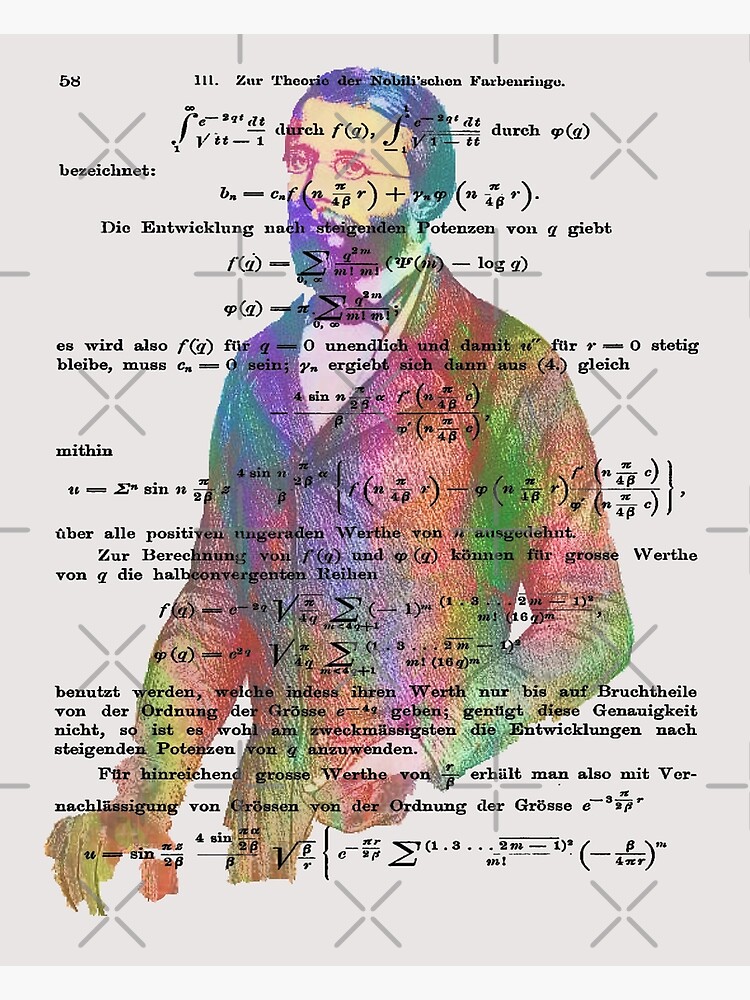 58 III. Zur Theorie der Nobili'schen Farbenringe.
∫₁^∞ e^{−2qt} dt / √(tt − 1) durch f(q), ∫₋₁^1 e^{−2qt} dt / √(1 − tt) durch φ(q)
bezeichnet:
bₙ = cₙ f (n π/4β r) + γₙ φ (n π/4β r).
Die Entwicklung nach steigenden Potenzen von q giebt
f(q) = Σ_{0, ∞} q^{2m} / m! m! (Ψ(m) − log q)
φ(q) = π Σ_{0, ∞} q^{2m} / m! m!;
es wird also f(q) für q = 0 unendlich und damit u″ für r = 0 stetig
bleibe, muss cₙ = 0 sein; γₙ ergiebt sich dann aus (4.) gleich
− 4 sin n π/2β α / β · f′ (n π/4β c) / φ′ (n π/4β c),
mithin
u = Σⁿ sin n π/2β z 4 sin n π/2β α / β {f (n π/4β r) − φ (n π/4β r) f′ (n π/4β c) / φ′ (n π/4β c)},
über alle positiven ungeraden Werthe von n ausgedehnt.
Zur Berechnung von f(q) und φ(q) können für grosse Werthe
von q die halbconvergenten Reihen
f(q) = e^{−2q} √(π/4q) Σ_{m<4q+1} (−1)^m (1 . 3 . . . 2m − 1)² / m! (16q)^m,
φ(q) = e^{2q} √(π/4q) Σ_{m<4q+1} (1 . 3 . . . 2m − 1)² / m! (16q)^m
benutzt werden, welche indess ihren Werth nur bis auf Bruchtheile
von der Ordnung der Grösse e^{−4q} geben; genügt diese Genauigkeit
nicht, so ist es wohl am zweckmässigsten die Entwicklungen nach
steigenden Potenzen von q anzuwenden.
Für hinreichend grosse Werthe von r/β erhält man also mit Ver-
nachlässigung von Grössen von der Ordnung der Grösse e^{−3 π/2β r}
u = sin πz/2β 4 sin πα/2β / β √(β/r) {e^{−πr/2β} Σ (1 . 3 . . . 2m − 1)² / m! (−β/4πr)^m